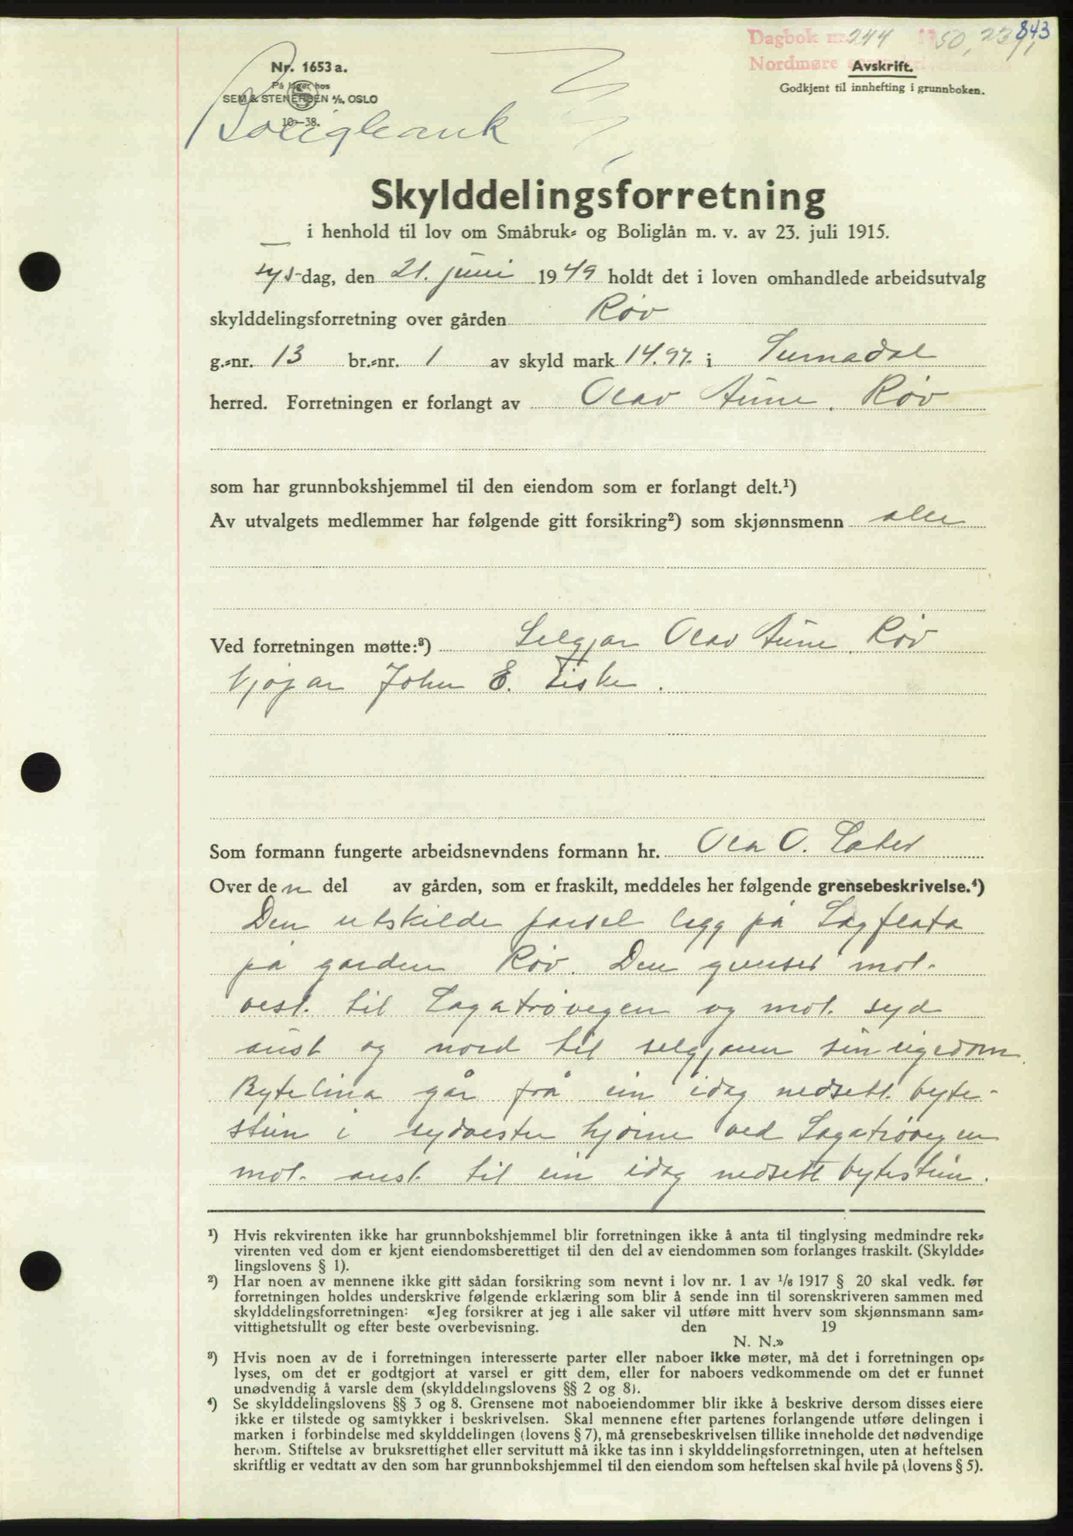 843
Dagbok nr. 244 1950, 23/1
Nordmøre
Nr. 1653 a.
På lager hos
SEM & STENERSEN A/S, OSLO
10–38.
Avskrift.
Godkjent til innhefting i grunnboken.
Boligbank
Skylddelingsforretning
i henhold til lov om Småbruk- og Boliglån m. v. av 23. juli 1915.
tys-dag, den 21. juni 1949 holdt det i loven omhandlede arbeidsutvalg
skylddelingsforretning over gården Røv
g.-nr. 13 br.-nr. 1 av skyld mark 14.97. i Surnadal
herred. Forretningen er forlangt av Olav Aune, Røv
som har grunnbokshjemmel til den eiendom som er forlangt delt.¹)
Av utvalgets medlemmer har følgende gitt forsikring²) som skjønnsmenn alle
Ved forretningen møtte:³) Selgjar Olav Aune, Røv
kjøpar John E. Fiske.
Som formann fungerte arbeidsnevndens formann hr. Ola O.
Over den del av gården, som er fraskilt, meddeles her følgende grensebeskrivelse.⁴)
Den utskilde parsel ligg på Sagflata
på garden Røv. Den grenser mot.
vest. til Sagatrøvegen og mot. syd
aust og nord til selgjaren sin eigedom.
Bytelina går frå ein idag nedsett byte-
stein i sydvestre hjørne ved Sagatrøvegen
mot. aust. til ein idag nedsett bytestein.
¹) Hvis rekvirenten ikke har grunnbokshjemmel blir forretningen ikke å anta til tinglysing medmindre rek-
virenten ved dom er kjent eiendomsberettiget til den del av eiendommen som forlanges fraskilt. (Skyldde-
lingslovens § 1).
²) Har noen av mennene ikke gitt sådan forsikring som nevnt i lov nr. 1 av ¹/₆ 1917 § 20 skal vedk. før
forretningen holdes underskrive følgende erklæring som blir å sende inn til sorenskriveren sammen med
skylddelingsforretningen: «Jeg forsikrer at jeg i alle saker vil utføre mitt hverv som skjønnsmann sam-
vittighetsfullt og efter beste overbevisning. den 19
N. N.»
³) Hvis noen av de i forretningen interesserte parter eller naboer ikke møter, må det i forretningen op-
lyses, om det er godtgjort at varsel er gitt dem, eller for naboers vedkommende om det er funnet
unødvendig å varsle dem (skylddelingslovens §§ 2 og 8).
⁴) Se skylddelingslovens §§ 3 og 8. Grensene mot naboeiendommer blir ikke å beskrive dersom disses eiere
ikke er tilstede og samtykker i beskrivelsen. Skal mennene efter partenes forlangende utføre delingen i
marken i forbindelse med skylddelingen (lovens § 7), må grensebeskrivelsen tillike inneholde det nødvendige
herom. Stiftelse av bruksrettighet eller servitutt må ikke tas inn i skylddelingsforretningen, uten at heftelsen
skriftlig er vedtatt av den som har grunnbokshjemmel til den eiendom som heftelsen skal hvile på (lovens § 5).